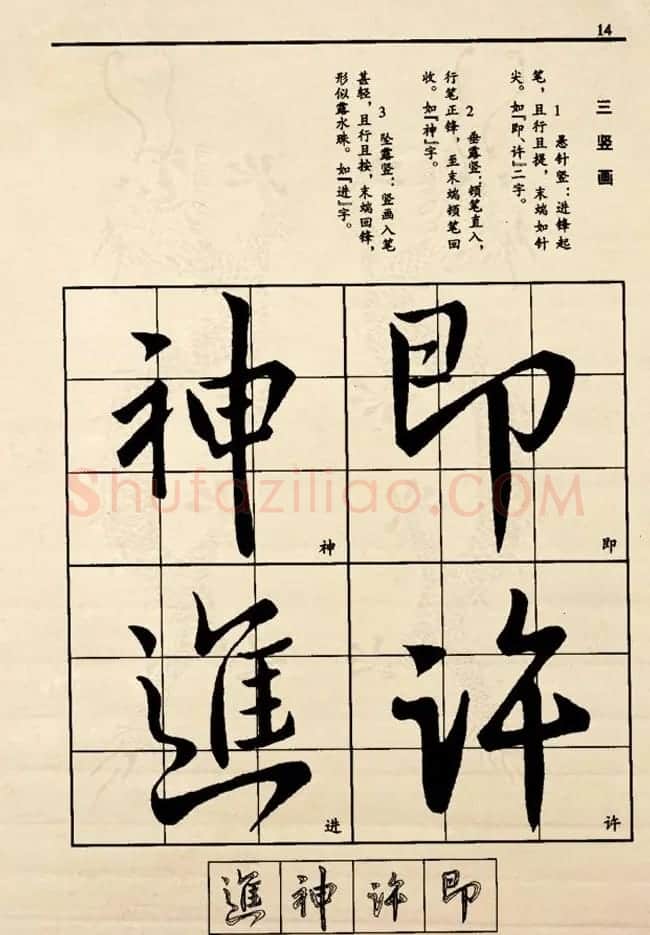 14
三 竖 画
1 悬针竖：进锋起
笔，且行且提，末端如针
尖。如『即、许』二字。
2 垂露竖：顿笔直入，
行笔正锋，至末端顿笔回
收。如『神』字。
3 坠露竖：竖画入笔
甚轻，且行且按，末端回锋，
形似露水珠。如『进』字。
即
即
許
许
神
神
進
进
Shufaziliao.COM
即
許
神
進